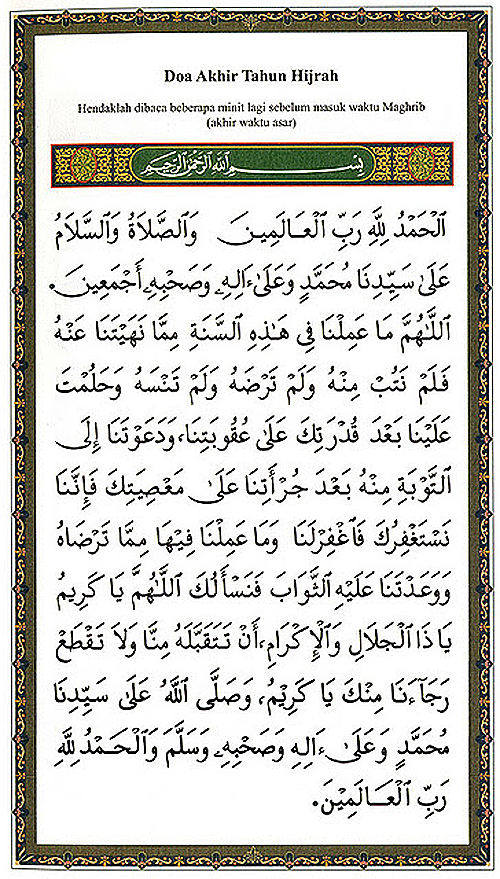 Doa Akhir Tahun Hijrah
Hendaklah dibaca beberapa minit lagi sebelum masuk waktu Maghrib
(akhir waktu asar)
بِسْمِ اللهِ الرَّحْمٰنِ الرَّحِيْمِ
اَلْحَمْدُ لِلَّهِ رَبِّ الْعَالَمِينَ وَالصَّلَاةُ وَالسَّلَامُ
عَلَىٰ سَيِّدِنَا مُحَمَّدٍ وَعَلَىٰ ءَالِهِ وَصَحْبِهِ أَجْمَعِينَ.
اَللَّهُمَّ مَا عَمِلْنَا فِي هَٰذِهِ السَّنَةِ مِمَّا نَهَيْتَنَا عَنْهُ
فَلَمْ نَتُبْ مِنْهُ وَلَمْ تَرْضَهُ وَلَمْ تَنْسَهُ وَحَلُمْتَ
عَلَيْنَا بَعْدَ قُدْرَتِكَ عَلَىٰ عُقُوبَتِنَا، وَدَعَوْتَنَا إِلَى
التَّوْبَةِ مِنْهُ بَعْدَ جُرْأَتِنَا عَلَىٰ مَعْصِيَتِكَ فَإِنَّنَا
نَسْتَغْفِرُكَ فَاغْفِرْلَنَا وَمَا عَمِلْنَا فِيْهَا مِمَّا تَرْضَاهُ
وَوَعَدْتَنَا عَلَيْهِ الثَّوَابَ فَنَسْأَلُكَ اللَّهُمَّ يَا كَرِيمُ
يَا ذَا الْجَلَالِ وَالْإِكْرَامِ، أَنْ تَتَقَبَّلَهُ مِنَّا وَلَا تَقْطَعْ
رَجَآءَنَا مِنْكَ يَا كَرِيْمُ، وَصَلَّى اللَّهُ عَلَىٰ سَيِّدِنَا
مُحَمَّدٍ وَعَلَىٰ ءَالِهِ وَصَحْبِهِ وَسَلَّمَ وَالْحَمْدُ لِلَّهِ
رَبِّ الْعَالَمِيْنَ.